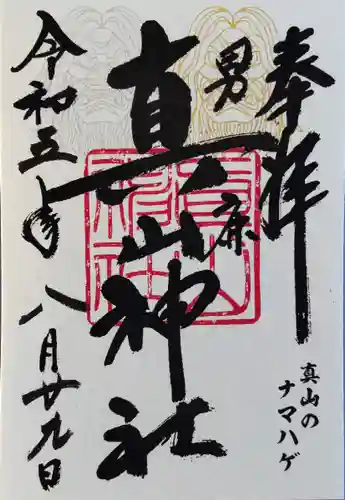 奉拝
真山の
ナマハゲ
男鹿
真山神社
令和五年八月廿九日